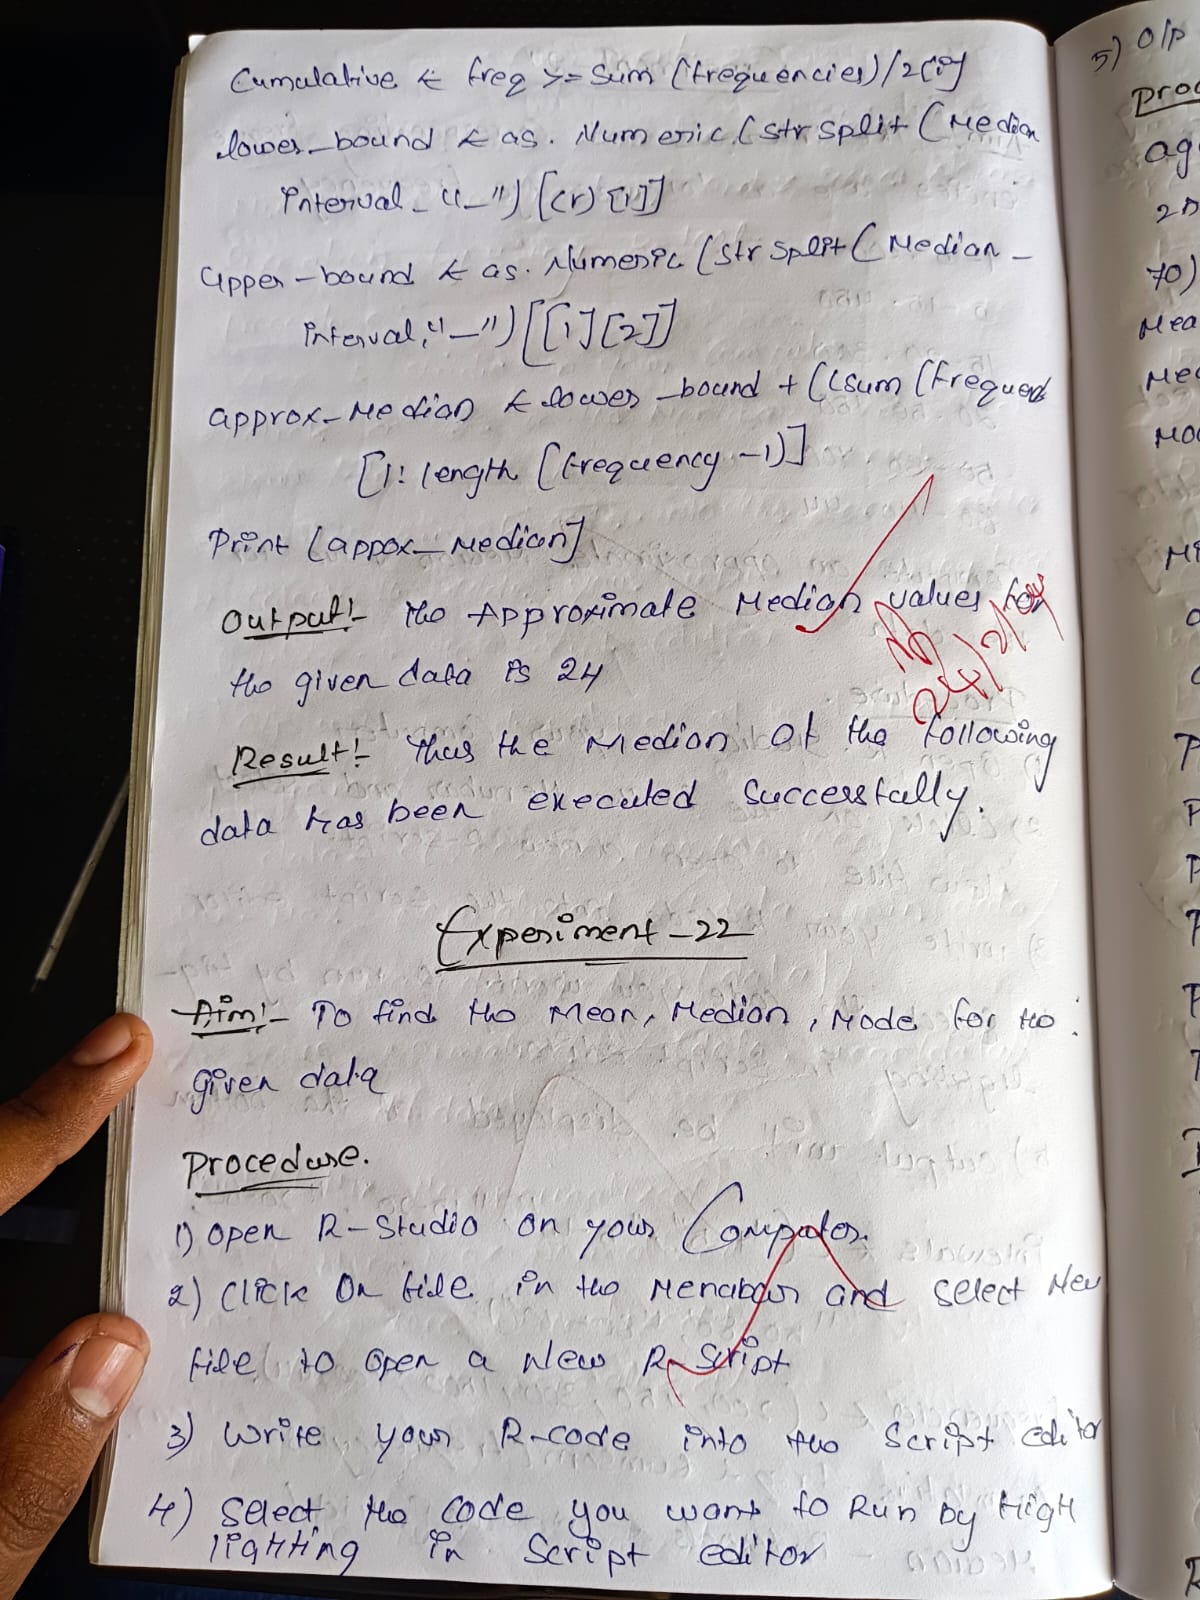 Cumulative ← freq >= Sum (frequencies)/2[i]
lower_bound ← as. Numeric (str split (Median
interval_ "_") [(r) [1]]
Upper-bound ← as. Numeric (str split (Median-
interval, "_") [[1][2]]
approx_Median ← lower_bound + ((sum (frequen
[1: length (frequency -1)]
Print (appox_Median]
Output:- The Approximate Median values for
the given data is 24
Result:- Thus the Median of the following
data has been executed successfully.
Experiment-22
Aim:- To find the Mean, Median, Mode for the
given data
Procedure.
1) open R-Studio on your Computer.
2) Click On file in the Menubar and select New
file to open a New R-Script
3) Write your R-code into the Script editor
4) Select the code you want to Run by High
lighting in Script editor
5) O/P
Proc
ag
70)
Mea
Med
Mo